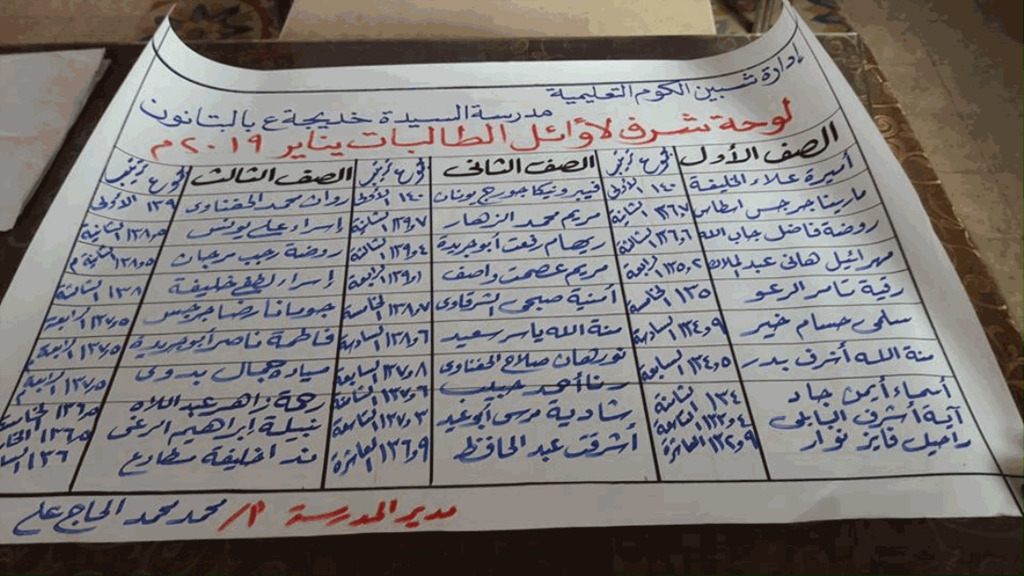 إدارة شبين الكوم التعليمية
مدرسة السيدة خديجة ع بالبتانون
لوحة شرف لأوائل الطالبات يناير ٢٠١٩ م
الصف الأول مجموع ترتيب الصف الثانى مجموع ترتيب الصف الثالث مجموع ترتيب
أميرة علاء الخليفة ١٤٠ الأولى فيبرونيكا جورج يونان ١٤٠ الأولى روان محمد الحفناوى ١٣٩ الأولى
مارينا جرجس ابطاس ١٣٦٫٧ الثانية مريم محمد الزهار ١٣٩٫٧ الثانية إسراء على يونس ١٣٨٫٥ الثانية
روضة فاضل جاب الله ١٣٦٫٦ الثالثة ريهام رفعت أبو جريدة ١٣٩٫٤ الثالثة روضة رجب مرجان ١٣٨٫٥ الثانية م
مهرائيل هانى عبد الملاك ١٣٥٫٢ الرابعة مريم عصمت واصف ١٣٩٫١ الرابعة إسراء لطفى خليفة ١٣٨ الثالثة
رقية تامر الرعو ١٣٥ الخامسة أمنية صبحى الشرقاوى ١٣٨٫٧ الخامسة جومانا رضا جرجس ١٣٧٫٥ الرابعة
سلمى حسام خير ١٣٤٫٩ السادسة منة الله ياسر سعيد ١٣٨٫٦ السادسة فاطمة ناصر أبو جريدة ١٣٧٫٥ الرابعة
منة الله أشرف بدر ١٣٤٫٥ السابعة نورهان صلاح الحفناوى ١٣٧٫٨ السابعة ميادة جمال بدوى ١٣٧٫٥ الرابعة م
أسماء أيمن جاد ١٣٤ الثامنة رنا أحمد حبيب ١٣٧٫٦ الثامنة رحمة زاهر عبد اللاه ١٣٦٫٥ الخامسة
آية أشرف البابلى التاسعة شادية مرسى أبو عيد ١٣٧٫٣ التاسعة نبيلة إبراهيم الرغى ١٣٦٫٥
راحيل فايز نوار ١٣٢٫٩ العاشرة أشرقت عبد الحافظ ١٣٦٫٩ العاشرة ندا خليفة مطاوع ١٣٦
مدير المدرسة أ/ محمد محمد الحاج على